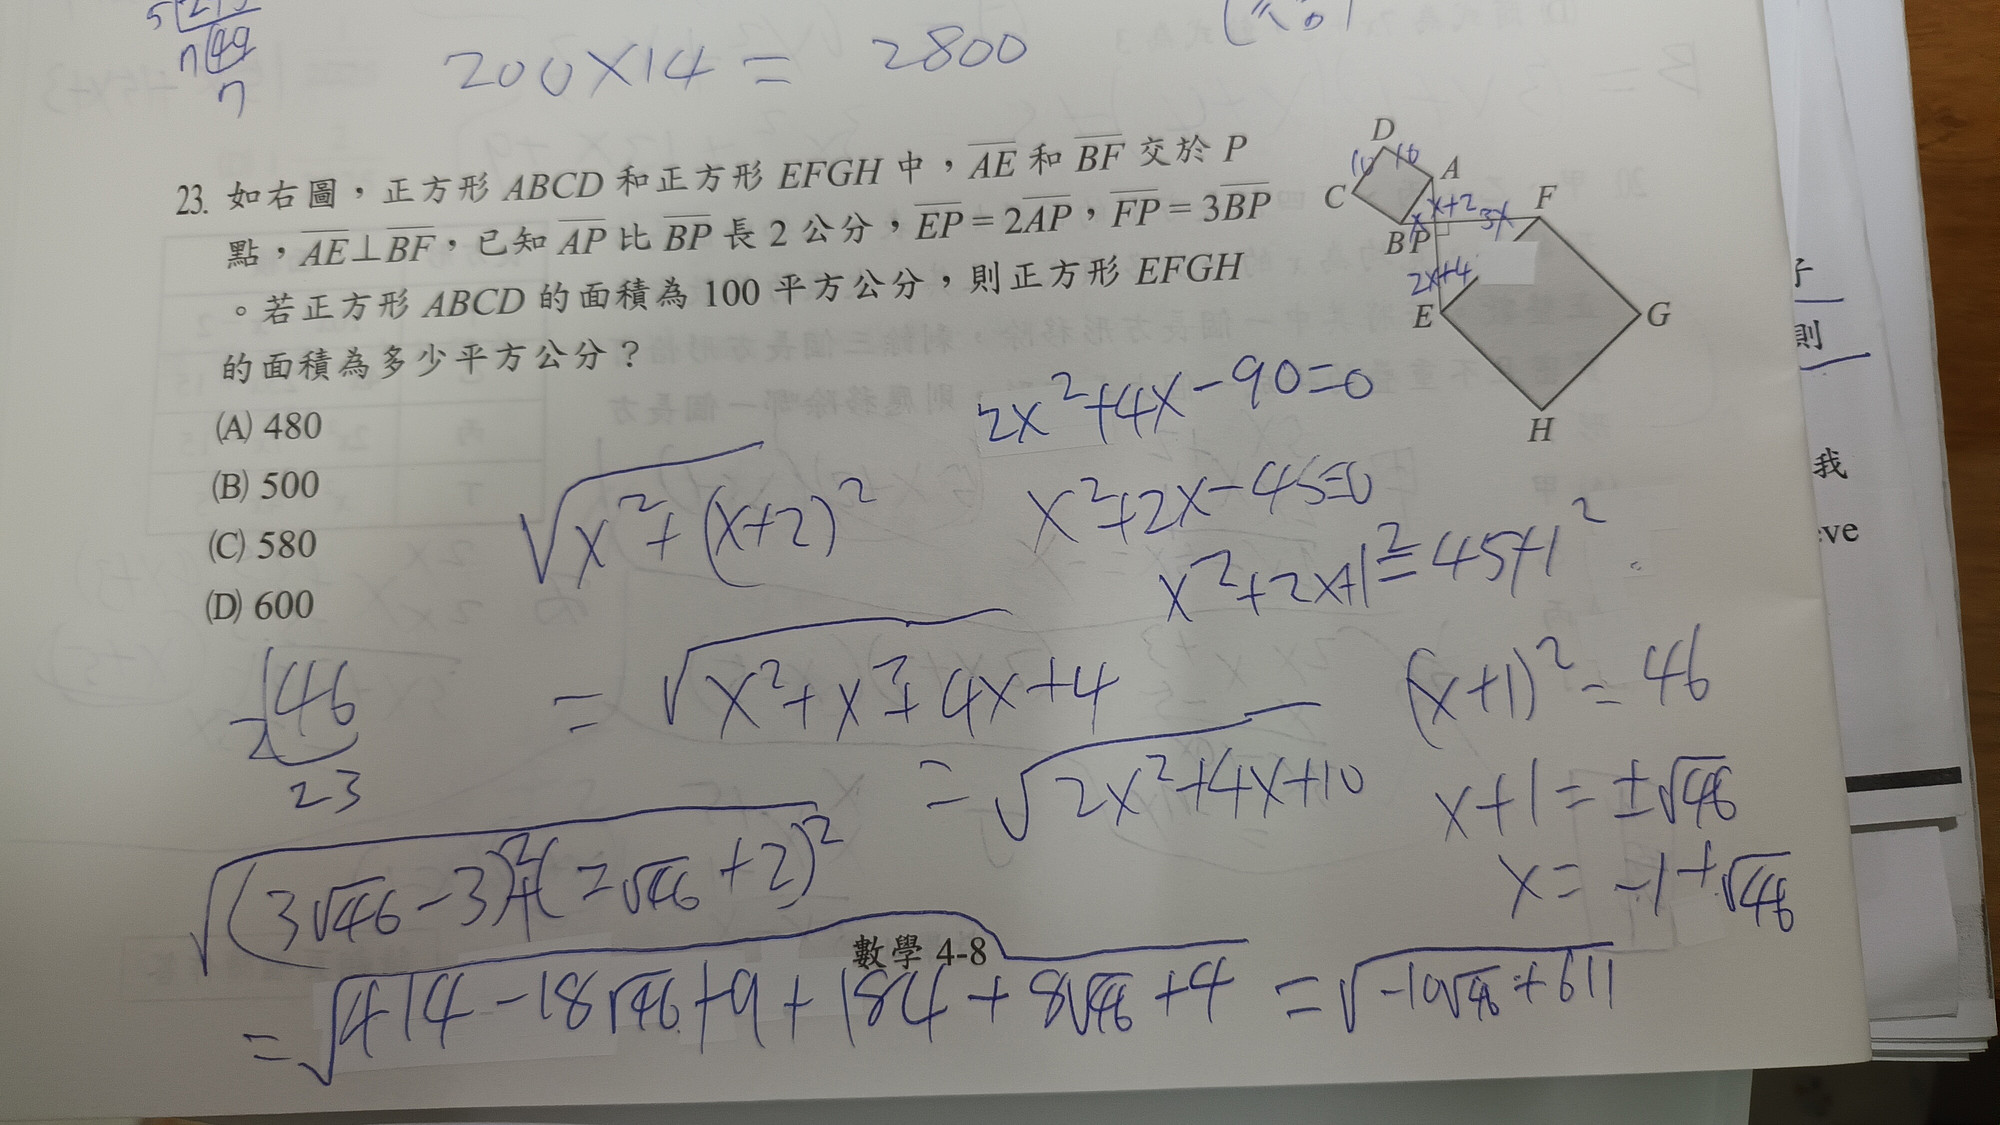 5
7 49
7
200×14 = 2800
23. 如右圖，正方形 ABCD 和正方形 EFGH 中，AE 和 BF 交於 P
點，AE⊥BF，已知 AP 比 BP 長 2 公分，EP = 2AP，FP = 3BP
。若正方形 ABCD 的面積為 100 平方公分，則正方形 EFGH
的面積為多少平方公分？
(A) 480
(B) 500
(C) 580
(D) 600
D
10 10
A
C
x+2
F
x
3x
B P
2x+4
E
G
H
2x²+4x-90=0
√x²+(x+2)²
x²+2x-45=0
x²+2x+1²=45+1²
2 46
23
= √x²+x²+4x+4
(x+1)² = 46
= √2x²+4x+10
x+1 = ±√46
x = -1+√46
√(3√46-3)²+(2√46+2)²
= √414-18√46+9+184+8√46+4 = √-10√46+611
數學 4-8
子
則
我
eve